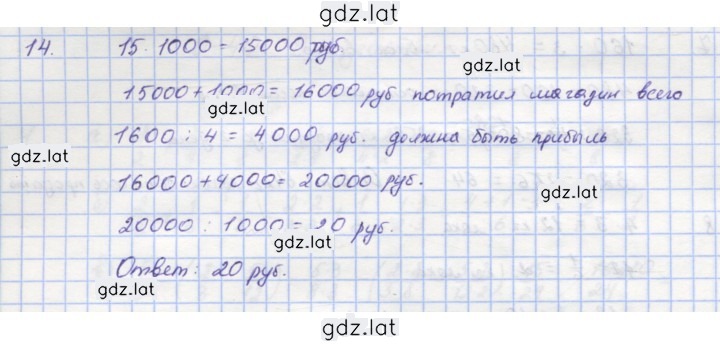 gdz.lat
14. 15 · 1000 = 15000 руб.
gdz.lat
15000 + 1000 = 16000 руб потратил магазин всего
gdz.lat
1600 : 4 = 4000 руб. должна быть прибыль
gdz.lat
16000 + 4000 = 20000 руб.
gdz.lat
20000 : 1000 = 20 руб.
gdz.lat
Ответ: 20 руб.
gdz.lat
gdz.lat